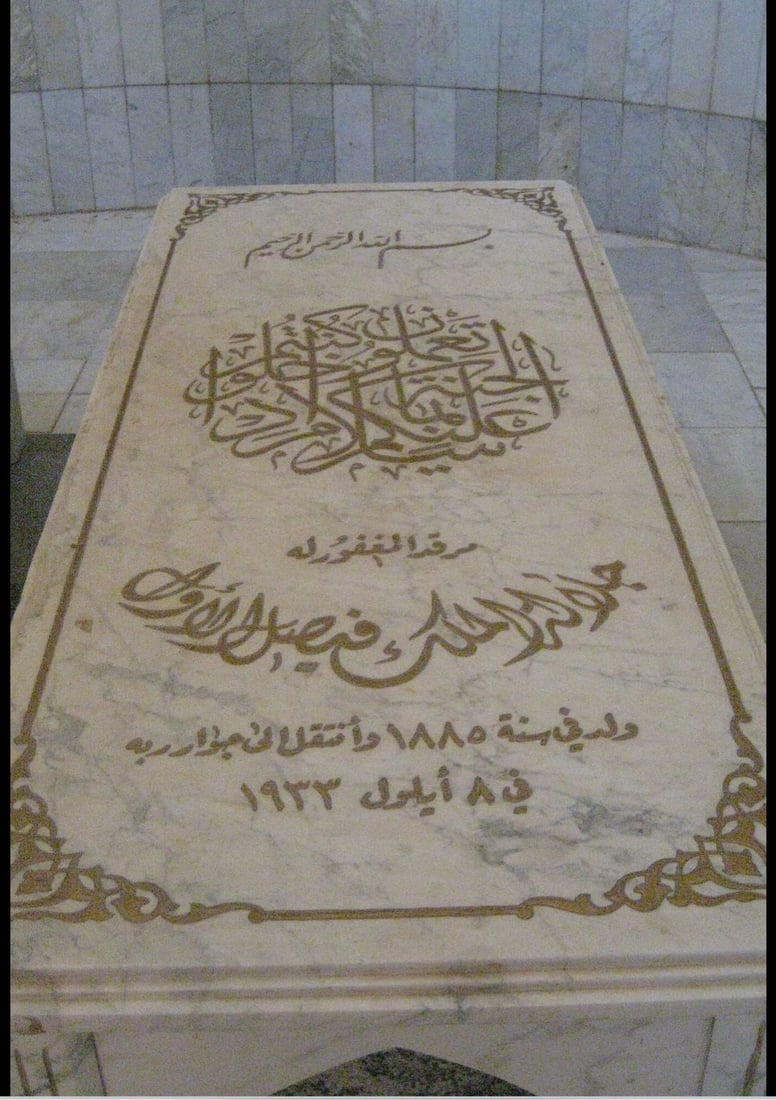 بسم الله الرحمن الرحيم
سلام عليكم ادخلوا الجنة بما كنتم تعملون
مرقد المغفور له
جلالة الملك فيصل الأول
ولد في سنة ١٨٨٥ وأنتقل الى جوار ربه
في ٨ أيلول ١٩٣٣